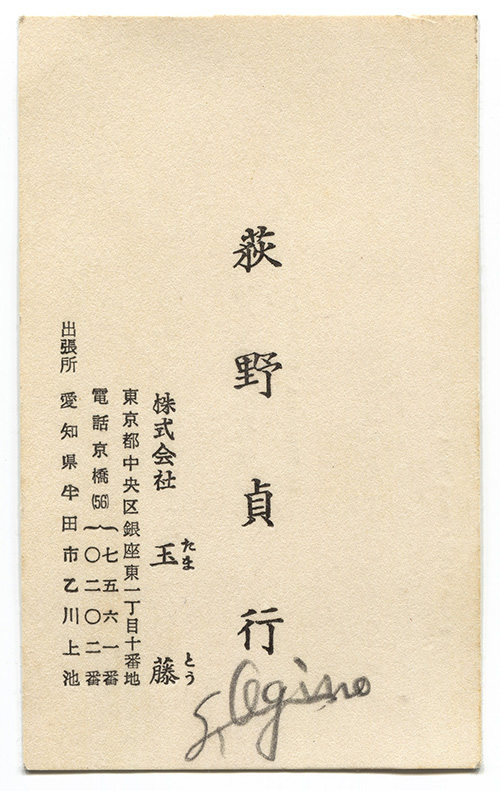 荻野貞行
株式会社 玉藤
たま とう
東京都中央区銀座東一丁目十番地
電話京橋(56)
七五六一番
〇二〇二番
出張所 愛知県半田市乙川上池
S. Ogino